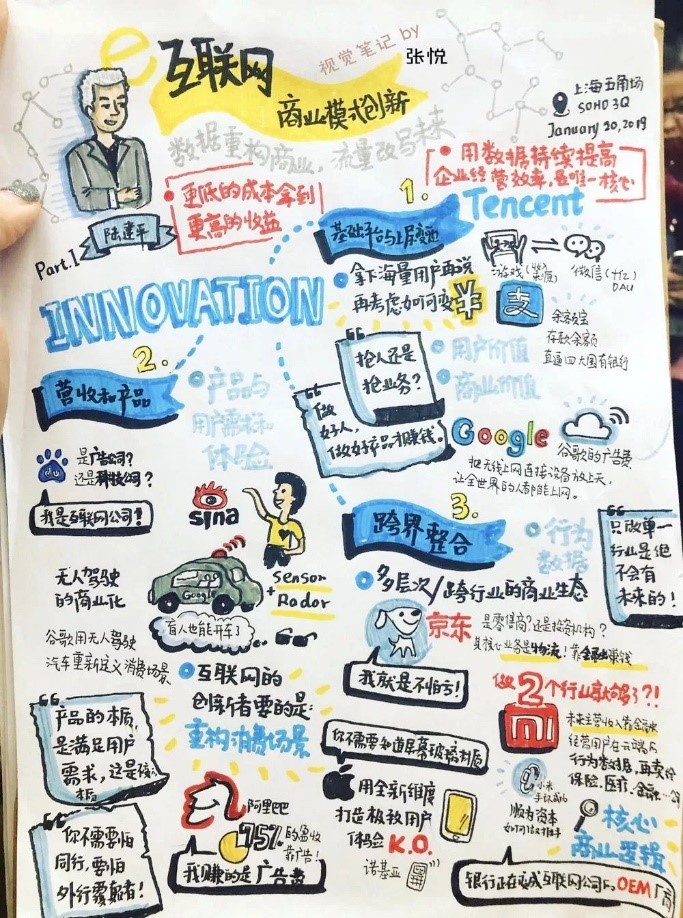 e互联网
商业模式创新
视觉笔记 by
张悦
上海五角场
SOHO 3Q
January 20, 2019
数据重构商业，流量改写未来
• 用数据持续提高
企业经营效率，是唯一核心
• 更低的成本拿到
更高的收益
陆建平
Part.1
INNOVATION
1.
基础平台与上层变现
Tencent
拿下海量用户再说
再考虑如何变¥
游戏(变现)
微信(十亿)
DAU
支
余额宝
存款余额
直逼四大国有银行
抢人还是
抢业务?
用户价值
商业价值
做
好人，
做好产品才赚钱。
Google
谷歌的广告费
把无线上网连接设备放上天，
让全世界的人都能上网。
2.
营收和产品
产品与
用户需求和
体验
是广告公司?
还是科技公司?
我是互联网公司!
sina
无人驾驶
的商业化
Google
sensor
+ Radar
盲人也能开车了
谷歌用无人驾驶
汽车重新定义消费场景
互联网的
创新者要的是:
重构消费场景
产品的本质
是满足用户
需求，这是核心
本质
你不需要怕
同行，要怕
外行颠覆者!
阿里巴
75%的营收
靠广告!
我赚的是广告费
3.
跨界整合
行为
数据
只做单一
行业是绝
不会有
未来的!
多层次/跨行业的商业生态
京东
是零售商?还是投资机构?
其核心业务是物流!靠金融赚钱
我就是不怕亏!
做2个行业就够了?!
未来主营收入靠金融
经营用户在云端后
行为数据,再卖
保险、医疗、金融...
你不需要知道屏幕玻璃材质
用全新维度
打造极致用户
体验 K.O.
诺基亚
小米
手环
顺为资本
核心
商业逻辑
银行正在变成互联网公司的OEM厂商